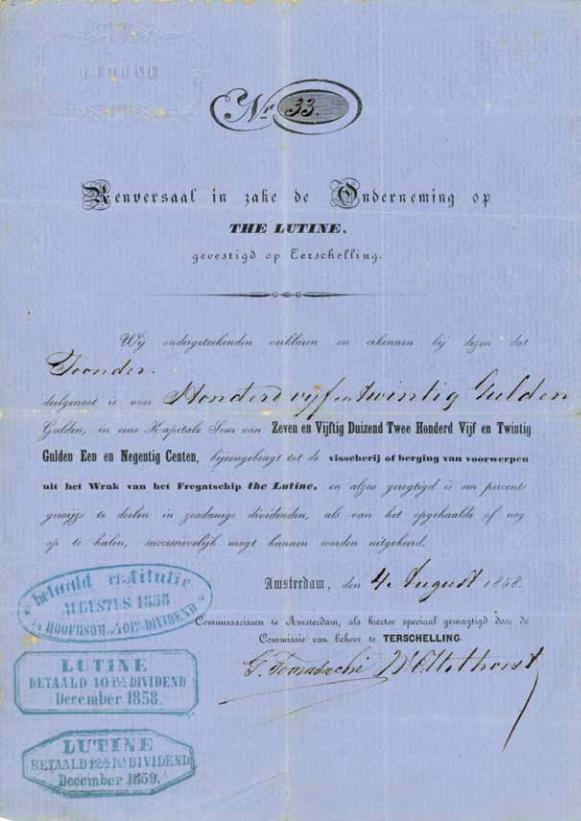 Nr. 33.
Renversaal in zake de Onderneming op
THE LUTINE,
gevestigd op Terschelling.
Wij ondergeteekenden verklaren en erkennen bij dezen dat
Toonder.
deelgenoot is voor Honderd vijf en twintig Gulden
Gulden, in eene Kapitale Som van Zeven en Vijftig Duizend Twee Honderd Vijf en Twintig
Gulden Een en Negentig Centen, bijeengebragt tot de visscherij of berging van voorwerpen
uit het Wrak van het Fregatschip the Lutine, en alzoo geregtigd is om percents
gewijze te deelen in zoodanige dividenden, als van het opgehaalde of nog
op te halen, successievelijk mogt kunnen worden uitgekeerd.
Amsterdam, den 4 August 1858.
Commissarissen te Amsterdam, als hiertoe speciaal gemagtigd door de
Commissie van beheer te TERSCHELLING.
betaald restitutie
AUGUSTUS 1858
HOOFDSOM 40 Pct DIVIDEND
LUTINE
BETAALD 10 Pct DIVIDEND
December 1858.
LUTINE
BETAALD 12½ Pct DIVIDEND
December 1859.